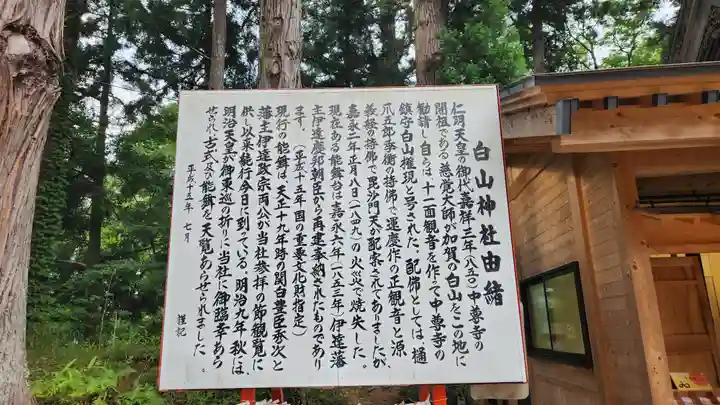 白山神社由緒
仁明天皇の御代嘉祥三年(八五〇)中尊寺の
開祖である慈覚大師が加賀の白山をこの地に
勧請し自らは十一面観音を作って中尊寺の
鎮守白山権現と号された。配佛としては、樋
爪五郎季衡の持佛で運慶作の正観音と源
義経の持佛で毘沙門天が配案されてありましたが、
嘉永二年正月八日(一八四九)の火災で焼失した。
現在ある能舞台は嘉永六年(一八五三年)伊達藩
主伊達慶邦朝臣から再建奉納されたものであり
ます。(平成十五年国の重要文化財指定)
現行の能舞は、天正十九年時の関白豊臣秀次と
藩主伊達政宗両公が当社参拝の節観覧に
供し以来継行今日に到っている。明治九年秋には、
明治天皇が御東巡の折りに当社に御臨幸あら
せられ古式及び能舞を天覧あらせられました。
平成十五年 七月
謹記